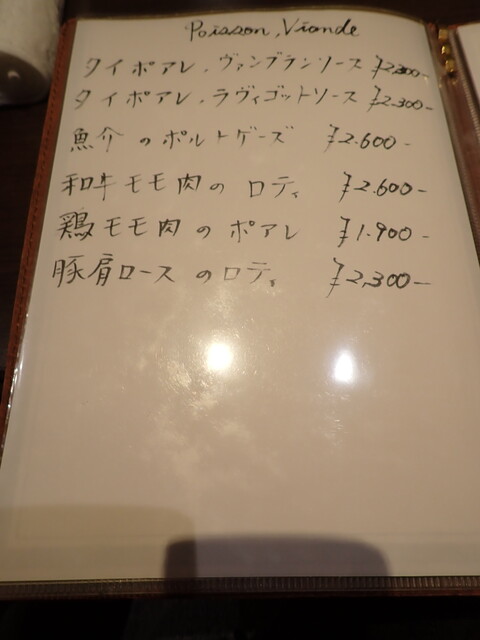 Poisson, Viande
タイポアレ、ヴァンブランソース ¥2.300-
タイポアレ、ラヴィゴットソース ¥2.300-
魚介のポルトゲーズ ¥2.600-
和牛モモ肉のロティ ¥2.600-
鶏モモ肉のポアレ ¥1.900-
豚肩ロースのロティ ¥2.300-